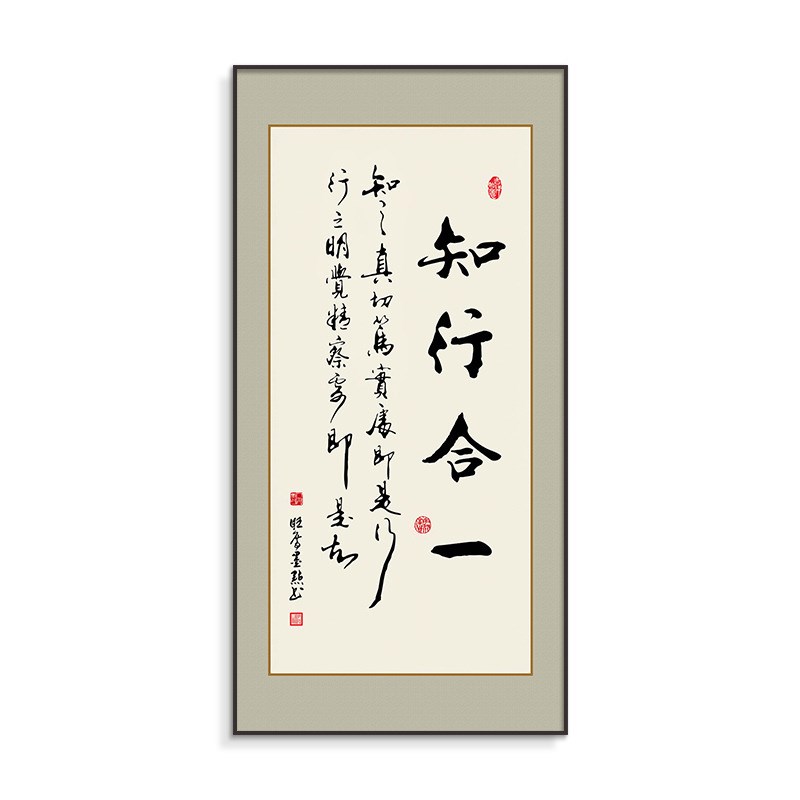 知行合一
知之真切篤實處即是行
行之明覺精察處即是知